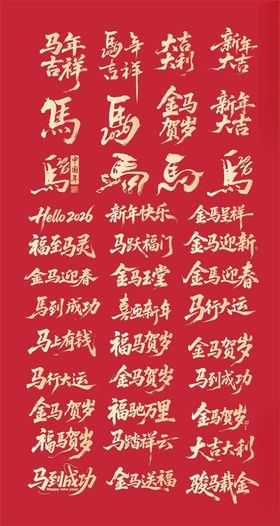 马年吉祥
馬年吉祥
大吉大利
新年大吉
馬
馬
金马贺岁
新年大吉
馬
中国年
馬
马
馬
Hello 2026
新年快乐
金马呈祥
福至马灵
马跃福门
金马迎新
金马迎春
金马玉堂
金馬迎春
馬到成功
喜迎新年
马行大运
马上有钱
福马贺岁
金马贺岁
马行大运
金马贺岁
马到成功
金马贺岁
福驰万里
金马贺岁
福马贺岁
马踏祥云
大吉大利
马到成功
Happy new year
金马送福
骏马载金